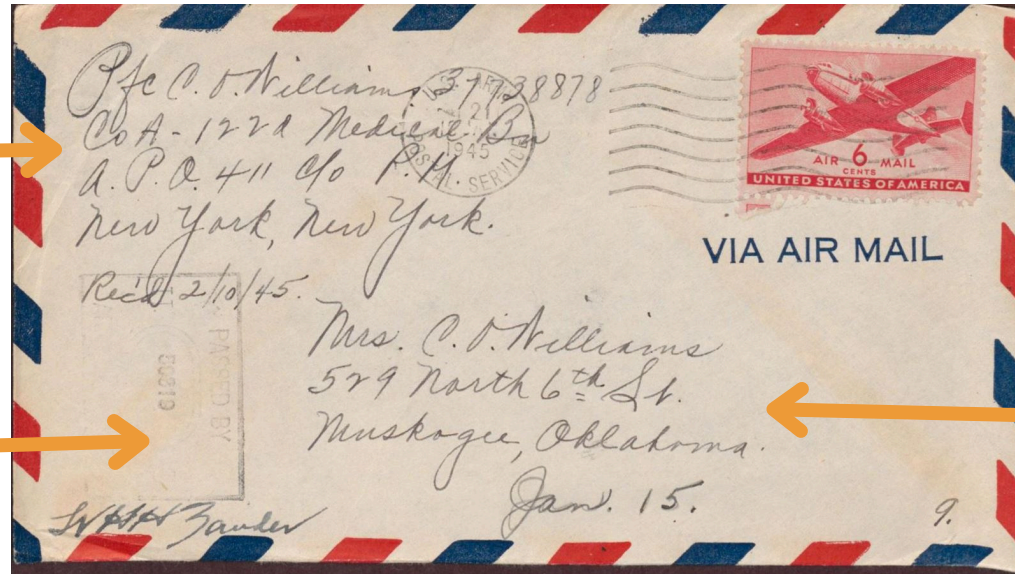 Pfc C. O. Williams 37738878
Co A - 122d Medical Bn
A. P. O. 411 c/o P. M.
New York, New York.
U.S. ARMY
21
1945
POSTAL SERVICE
AIR 6 MAIL
CENTS
UNITED STATES OF AMERICA
VIA AIR MAIL
Rec'd 2/10/45.
PASSED BY
Mrs. C. O. Williams
529 North 6th St.
Muskogee, Oklahoma.
Jan. 15.
9.